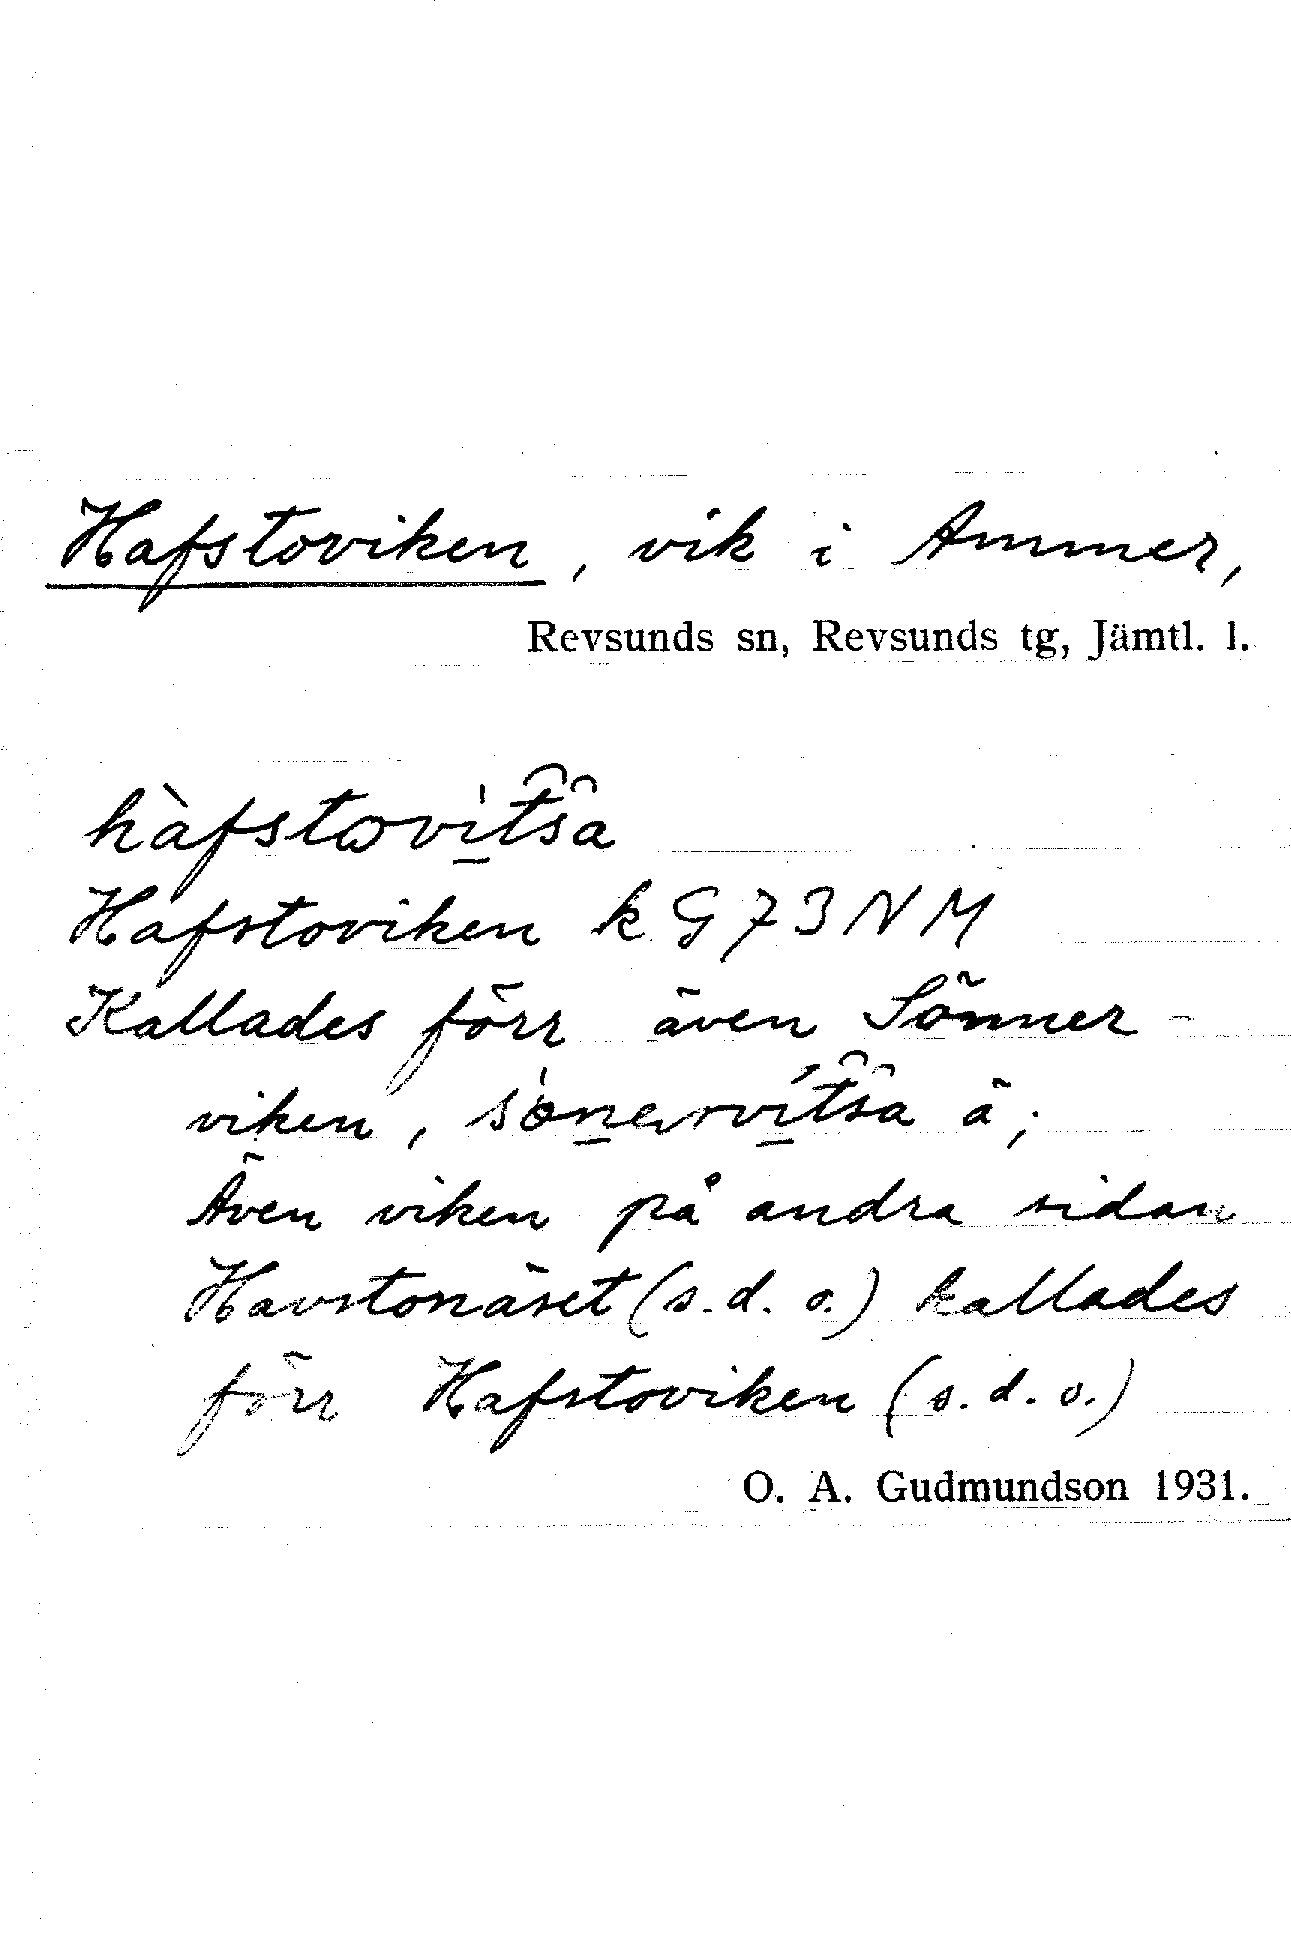 Hafstoviken, vik i Ammer,
Revsunds sn, Revsunds tg, Jämtl. l.
hàfstωvi̲t͡s͡a
Hafstoviken k G 73 NM
Kallades förr även Sönner-
viken, ä;
Även viken på andra sidan
Havstonäset (s. d. o.) kallades
förr Hafstoviken (s. d. o.)
O. A. Gudmundson 1931.